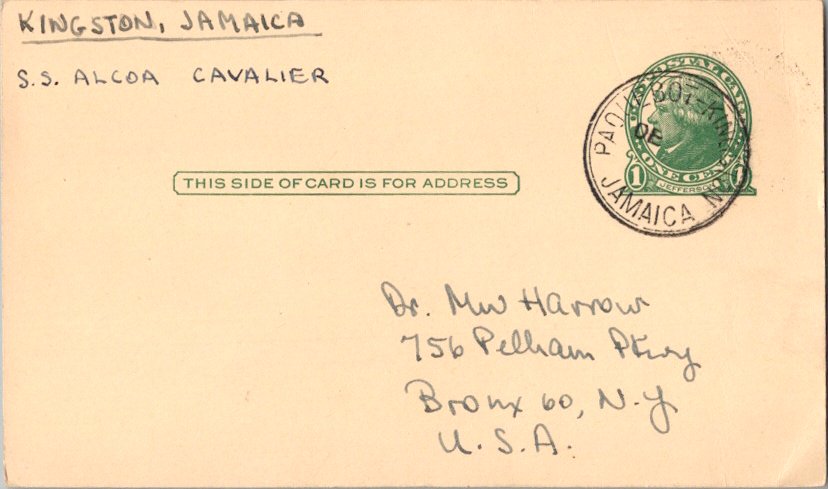 KINGSTON, JAMAICA
S.S. ALCOA CAVALIER
U.S. POSTAL CARD
ONE CENT
1 JEFFERSON 1
PAQUEBOT-KINGSTON
DE
JAMAICA No
THIS SIDE OF CARD IS FOR ADDRESS
Dr. MW Harrow
756 Pelham Pkwy
Bronx 60, N.Y
U.S.A.